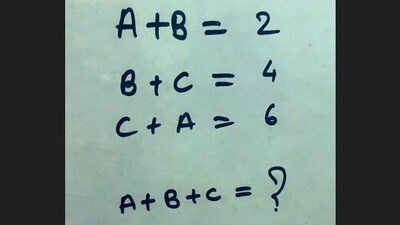 A+B = 2
B + C = 4
C + A = 6
A + B + C = ?